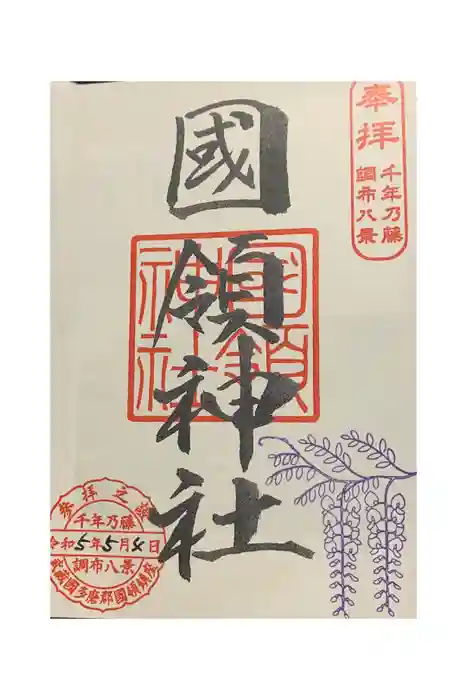 奉拝
千年乃藤
調布八景
國領神社
國領
神社
参拝之証
千年乃藤
令和5年5月4日
調布八景
武蔵國多磨郡國領鎮座